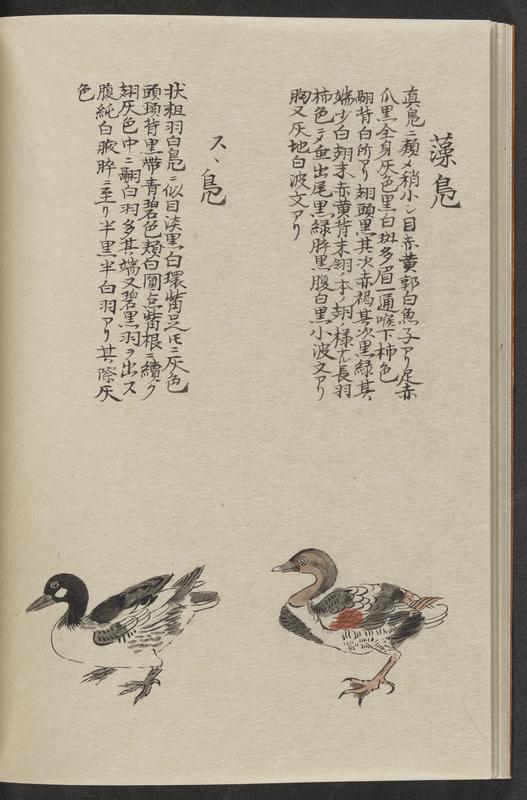 藻鳧
真鳧ニ類メ稍小シ目赤黄郭白魚子アリ足赤
爪黒全身灰色黒白斑多眉一通喉下柿色
翮背白所アリ翅頭黒其次赤褐其次黒緑其
端少白翅末赤黄背末翎ノ本ノ翅ノ様ナル長羽
柿色ニテ垂出尾黒緑脖黒腹白黒小波文アリ
胸又灰地白波文アリ
スヾ鳧
状粗羽白鳧ニ似目淡黒白環觜足氏ニ灰色
頭頚背黒帯青碧色頬白圓点觜根ニ續ク
翅灰色中ニ翮白羽多其端又碧黒羽ヲ出ス
腹純白腋脖ニ至リ半黒半白羽アリ其際灰
色